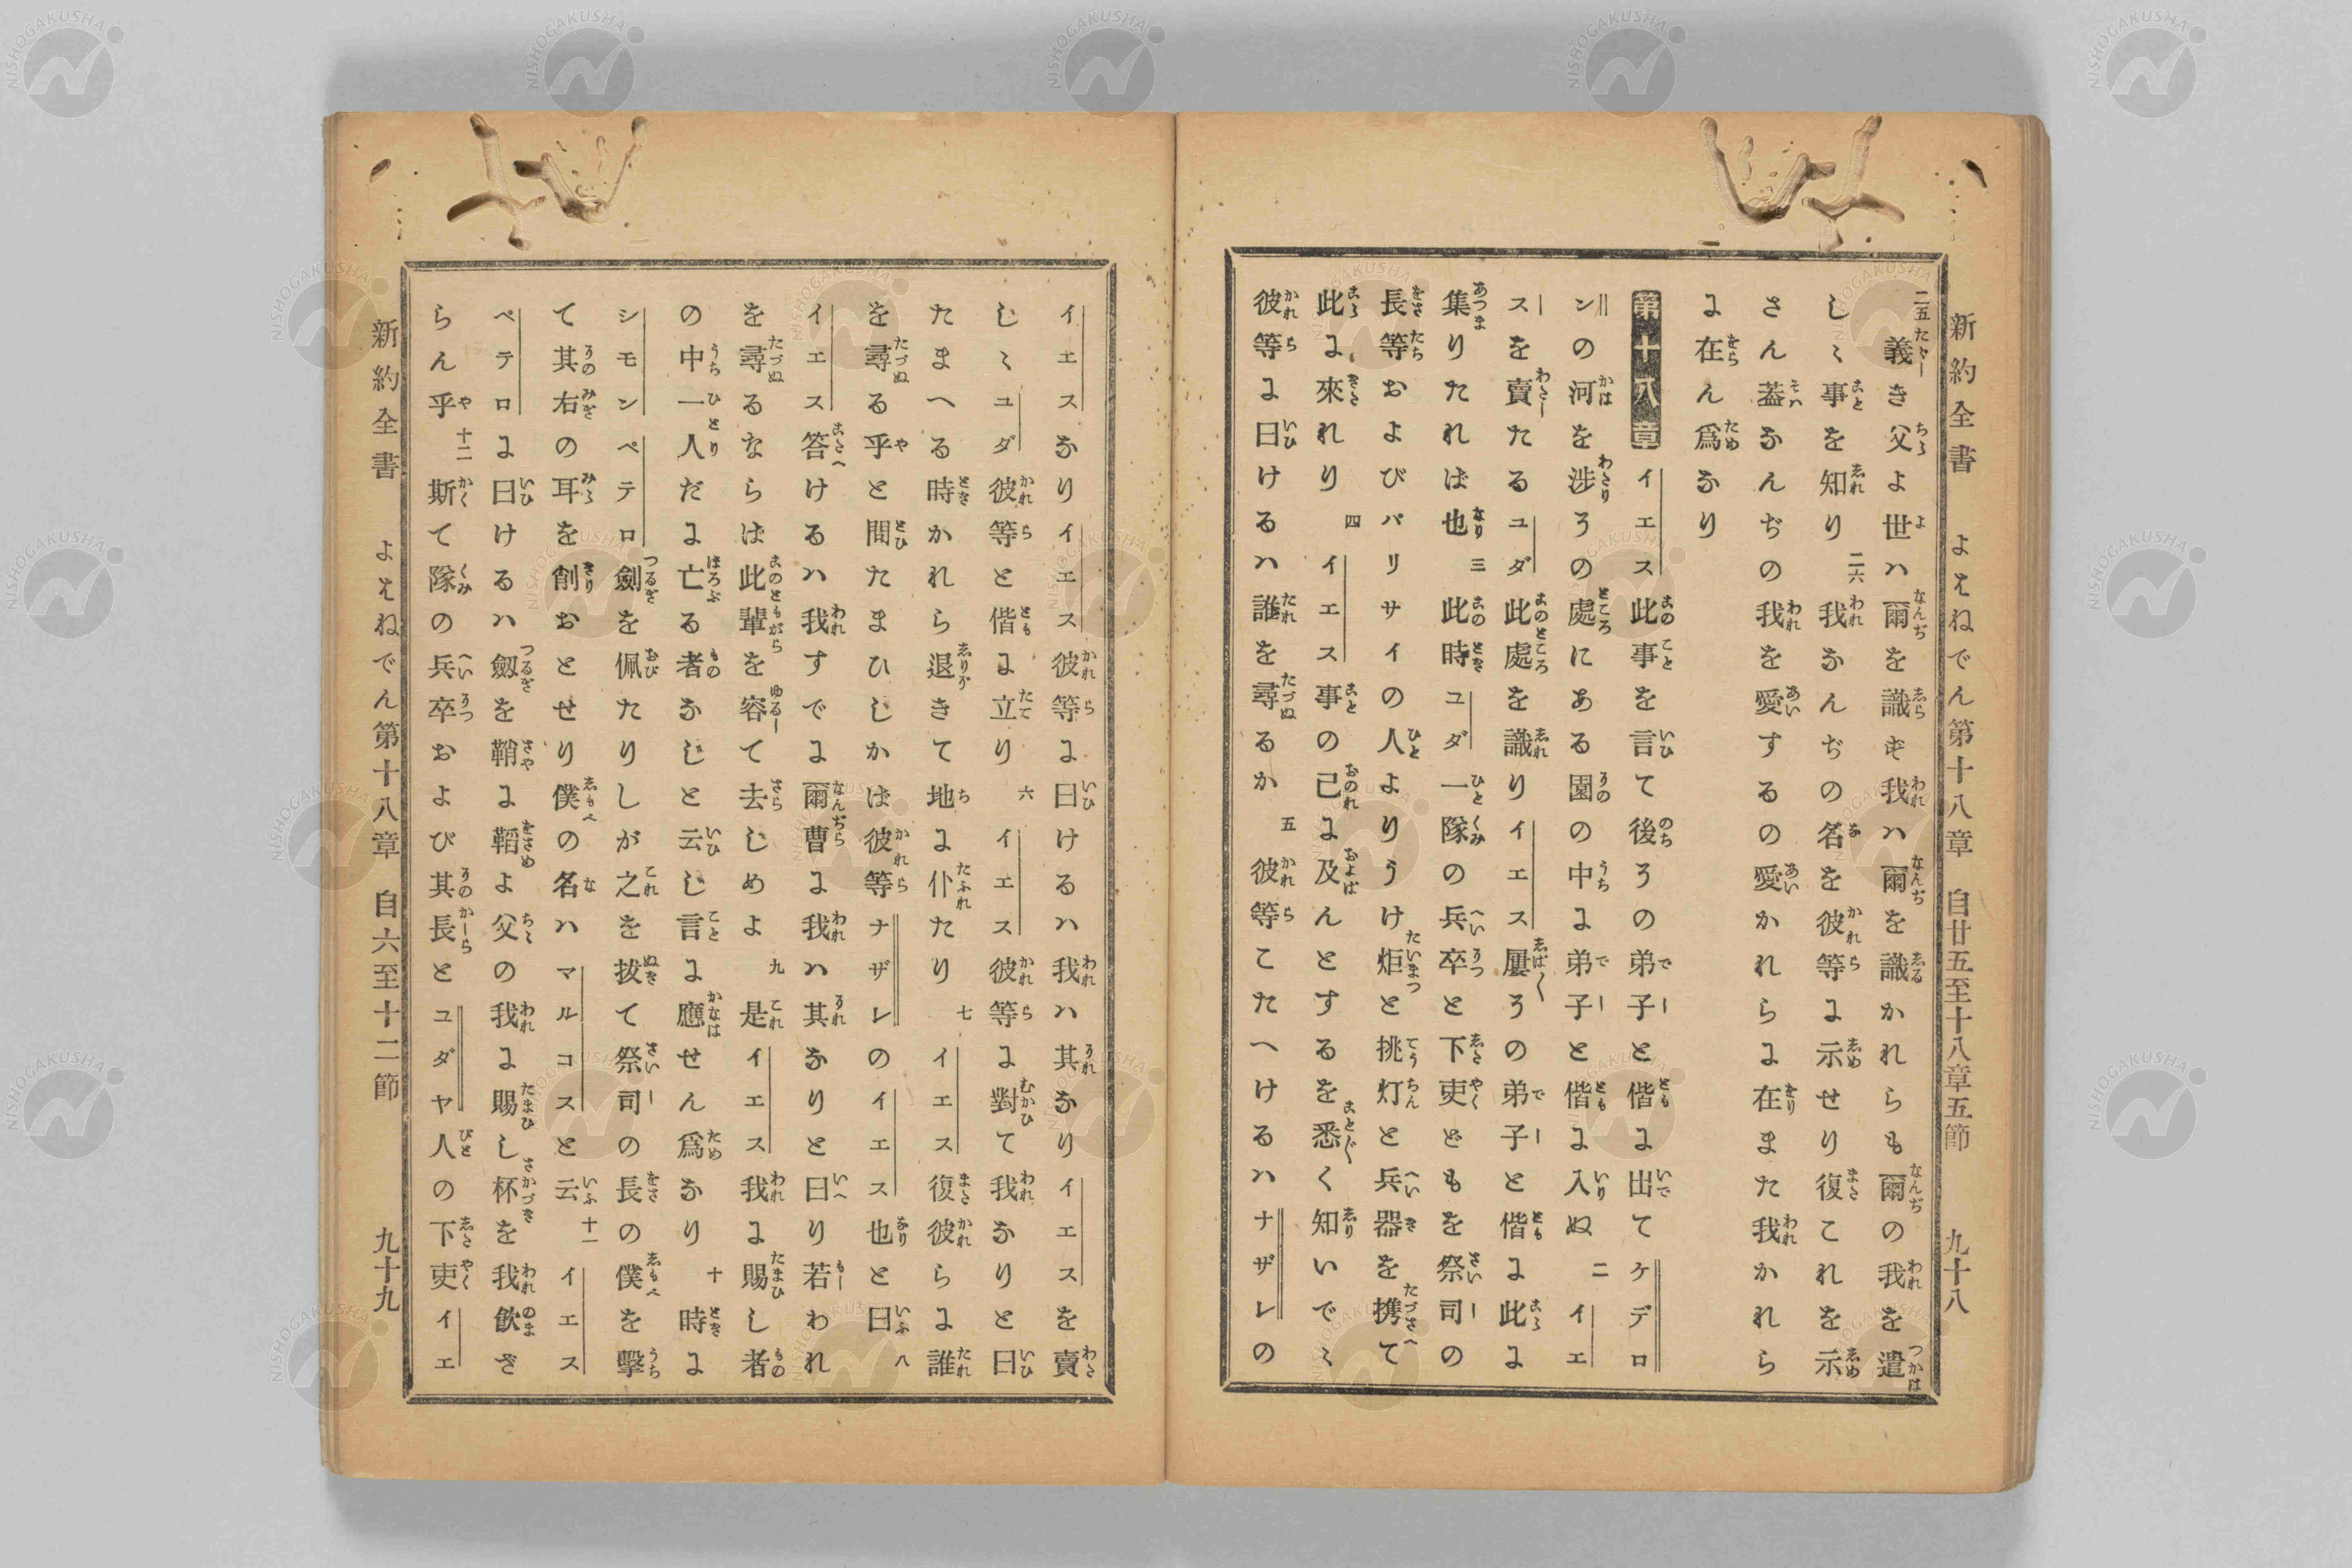 新約全書　よはねでん第十八章　自廿五至十八章五節　九十八
二五義き父よ世ハ爾を識ず我ハ爾を識かれらも爾の我を遣
しゝ事を知り二六我なんぢの名を彼等に示せり復これを示
さん蓋なんぢの我を愛するの愛かれらに在また我かれら
に在ん爲なり
第十八章　イエス此事を言て後その弟子と偕に出てケデロ
ンの河を渉りその處にある園の中に弟子と偕に入ぬ二イエ
スを賣たるユダ此處を識りイエス屢その弟子と偕に此に
集りたれば也三此時ユダ一隊の兵卒と下吏どもを祭司の
長等およびパリサイの人よりうけ炬と挑灯と兵器を携て
此に來れり四イエス事の己に及んとするを悉く知いでゝ
彼等に曰けるハ誰を尋るか五彼等こたへけるハナザレの
イエスなりイエス彼等に曰けるハ我ハ其なりイエスを賣
しゝユダ彼等と偕に立り六イエス彼等に對て我なりと曰
たまへる時かれら退きて地に仆たり七イエス復彼らに誰
を尋る乎と問たまひしかば彼等ナザレのイエス也と曰八
イエス答けるハ我すでに爾曹に我ハ其なりと曰り若われ
を尋るならば此輩を容て去しめよ九是イエス我に賜し者
の中一人だに亡る者なしと云し言に應せん爲なり十時に
シモンペテロ劍を佩たりしが之を拔て祭司の長の僕を擊
て其右の耳を削おとせり僕の名ハマルコスと云十一イエス
ペテロに曰けるハ劔を鞘に鞱よ父の我に賜し杯を我飮ざ
らん乎十二斯て隊の兵卒および其長とユダヤ人の下吏イエ
新約全書　よはねでん第十八章　自六至十二節　九十九
NISHOGAKUSHA